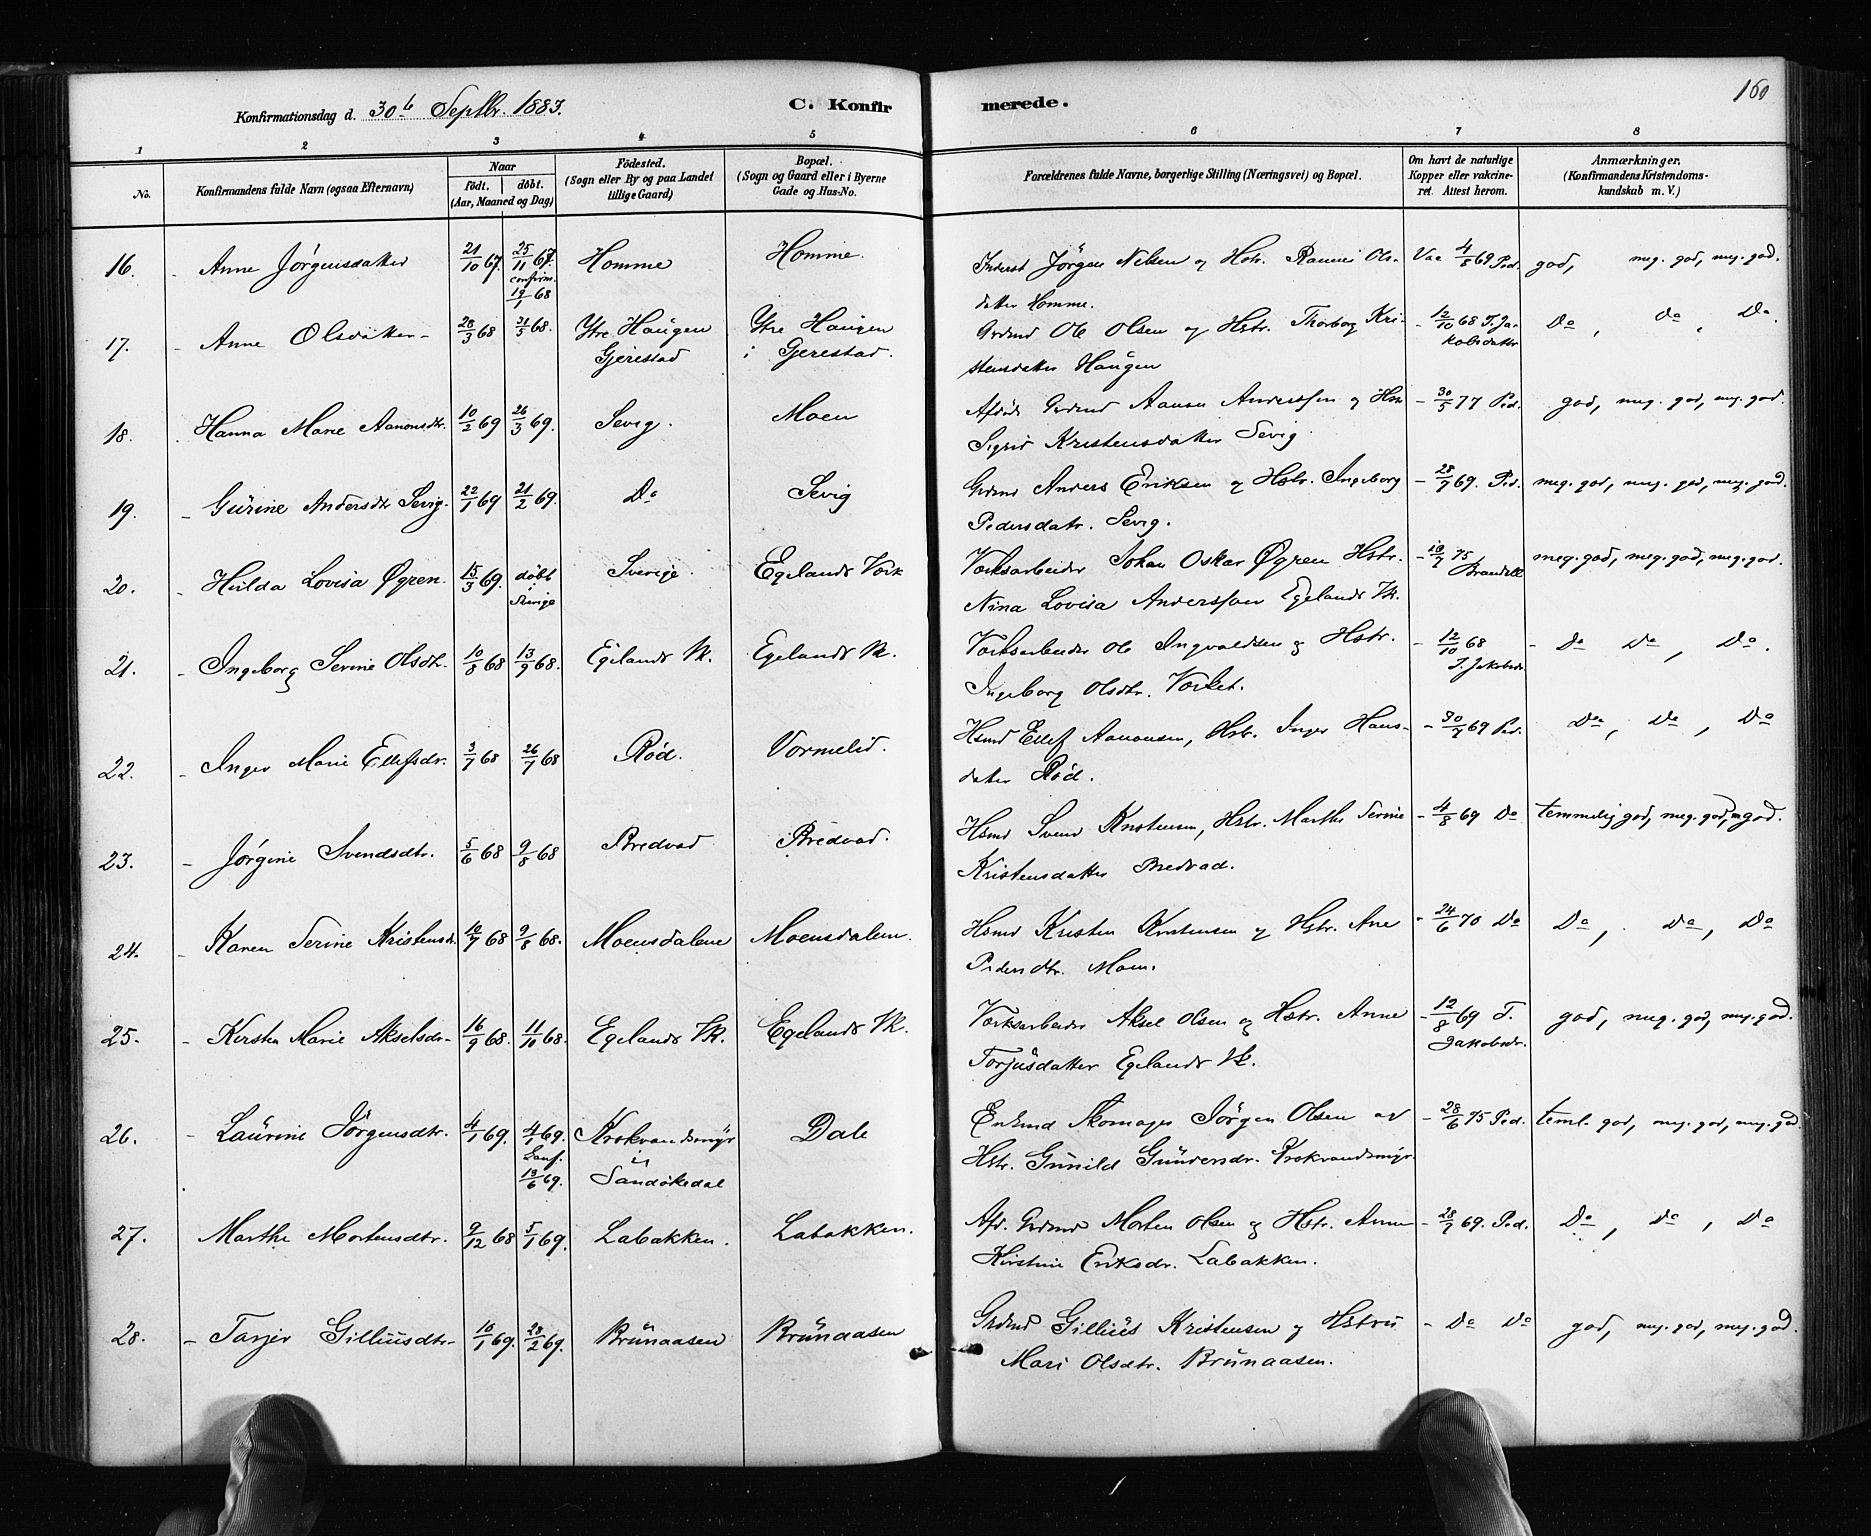 160
Konfirmationsdag d. 30te Septbr. 1883. C. Konfirmerede.
1 2 3 4 5 6 7 8
No. Konfirmandens fulde Navn (ogsaa Efternavn) Naar født. døbt. (Aar, Maaned og Dag) Fødested. (Sogn eller By og paa Landet tillige Gaard) Bopæl. (Sogn og Gaard eller i Byerne Gade og Hus-No. Forældrenes fulde Navne, borgerlige Stilling (Næringsvei) og Bopæl. Om havt de naturlige Kopper eller vakcineret. Attest herom. Anmærkninger. (Konfirmandens Kristendomskundskab m. V.)
16. - Anne Jörgensdatter 21/10 67. 25/11 67. confirm. 19/1 68 Homme Homme. Inderst Jörgen Nilsen og Hstr. Olsdatter Homme. Vac 4/8 69 Ped. god, meg. god, meg. god.
17. - Anne Olsdatter - 28/3 68 31/5 68. Ytre Haugen Gjerestad Ytre Haugen i Gjerestad. Grdmd Ole Olsen og Hstr. Thorborg Kristensdatter Haugen - 12/10 68 T. Jakobsdatter Do, Do, Do.
18. - Hanna Marie Aanonsdtr. 10/2 69 26/3 69. Sevig. Moen Afdöde Grdmd Aanon Anderssen og Hstr Sigrid Kristensdatter Sevig. - 30/5 77 Ped. god, meg. god, meg. god.
19. - Gurine Andersdtr Sevig. 22/1 69 21/2 69. Do Sevig Grdmd Anders Eriksen og Hstr. Ingeborg Pedersdatr. Sevig. - 28/7 69. Ped. meg. god, meg. god, meg. god.
20. - Hulda Lovisa Øgren 15/3 69. døbt i Sverige Sverige. Egelands Værk Værksarbeider Johan Oskar Øgren Hstr. Nina Lovisa Anderssen Egelands Vk. - 10/7 75 Brandell meg. god, meg. god, meg. god.
21. - Ingeborg Serine Olsdtr. 10/8 68 13/9 68. Egelands Vk. Egelands Vk. Værksarbeider Ole Ingvaldsen og Hstr. Ingeborg Olsdtr. Værket. - 12/10 68 T. Jakobsdr. - Do Do, Do.
22. - Inger Marie Ellefsdr. 3/7 68 26/7 68 Rød. Vormelid. Hsmd Ellef Aanonsen, Hstr. Inger Hansdatter Rød. - 30/7 69 Ped. Do, Do, Do
23. - Jörgine Svendsdtr. 5/6 68 9/8 68 Bredvad Bredvad. Hsmd Svend Kristensen, Hstr. Marthe Serine Kristensdatter Bredvad. - 4/8 69 Do temmelig god, meg. god, m god.
24. - Karen Serine Kristensdr. 10/7 68 9/8 68. Moensdalene Moensdalen. Hsmd Kristen Kristensen og Hstr. Ane Pedersdtr. Moen. - 24/6 70 Do Do, Do, Do
25. - Kirsten Marie Akselsdr- 16/9 68. 11/10 68. Egelands Vk. Egelands Vk. Værksarbeider Aksel Olsen og Hstr. Anne Torjusdatter Egelands Vk. - 12/8 69 T. Jakobsdr. god, meg. god, meg. god.
26. - Laurine Jörgensdtr. 4/1 69. 4/1 69. Conf. 13/6 69. Krokvandsmyr i Sandökedal Dale Enkmd Skomager Jörgen Olsen og Hstr. Gunild Gundersdr. Krokvandsmyr. - 28/6 75 Ped. teml. god, meg. god, meg. god.
27. - Marthe Mortensdtr. 9/12 68 5/1 69. Labakken. Labakken. Afd. Grdmd Morten Olsen og Hstr. Anne Kirstine Eriksdr. Labakken. - 28/7 69. Ped. Do, Do, Do
28. - Tarjer Gilliusdtr- 10/1 69. 28/2 69. Brunaasen Brunaasen Grdmd Gillius Kristensen og Hstru Mari Olsdtr. Brunaasen. - Do Do god, meg. god, meg. god.